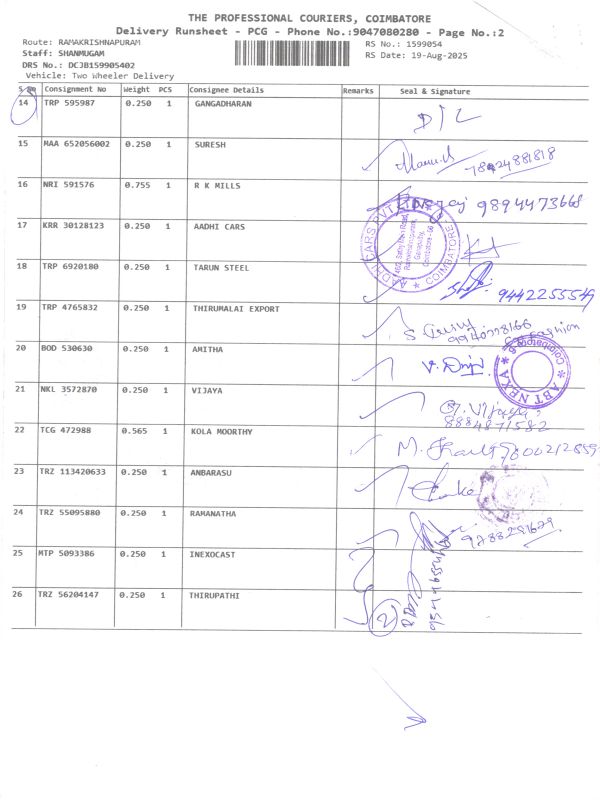 THE PROFESSIONAL COURIERS, COIMBATORE
Delivery Runsheet - PCG - Phone No.:9047080280 - Page No.:2
Route: RAMAKRISHNAPURAM
RS No.: 1599054
Staff: SHANMUGAM
RS Date: 19-Aug-2025
DRS No.: DCJB159905402
Vehicle: Two Wheeler Delivery
S No Consignment No Weight PCS Consignee Details Remarks Seal & Signature
14 TRP 595987 0.250 1 GANGADHARAN
D/L
15 MAA 652056002 0.250 1 SURESH
16 NRI 591576 0.755 1 R K MILLS
9894473668
17 KRR 30128123 0.250 1 AADHI CARS
AADHI CARS PVT LTD
COIMBATORE
18 TRP 6920180 0.250 1 TARUN STEEL
9442255549
19 TRP 4765832 0.250 1 THIRUMALAI EXPORT
20 BOD 530630 0.250 1 AMITHA
ABT NEXA
21 NKL 3572870 0.250 1 VIJAYA
8884871582
22 TCG 472988 0.565 1 KOLA MOORTHY
23 TRZ 113420633 0.250 1 ANBARASU
24 TRZ 55095880 0.250 1 RAMANATHA
9788291629
25 MTP 5093386 0.250 1 INEXOCAST
26 TRZ 56204147 0.250 1 THIRUPATHI
2